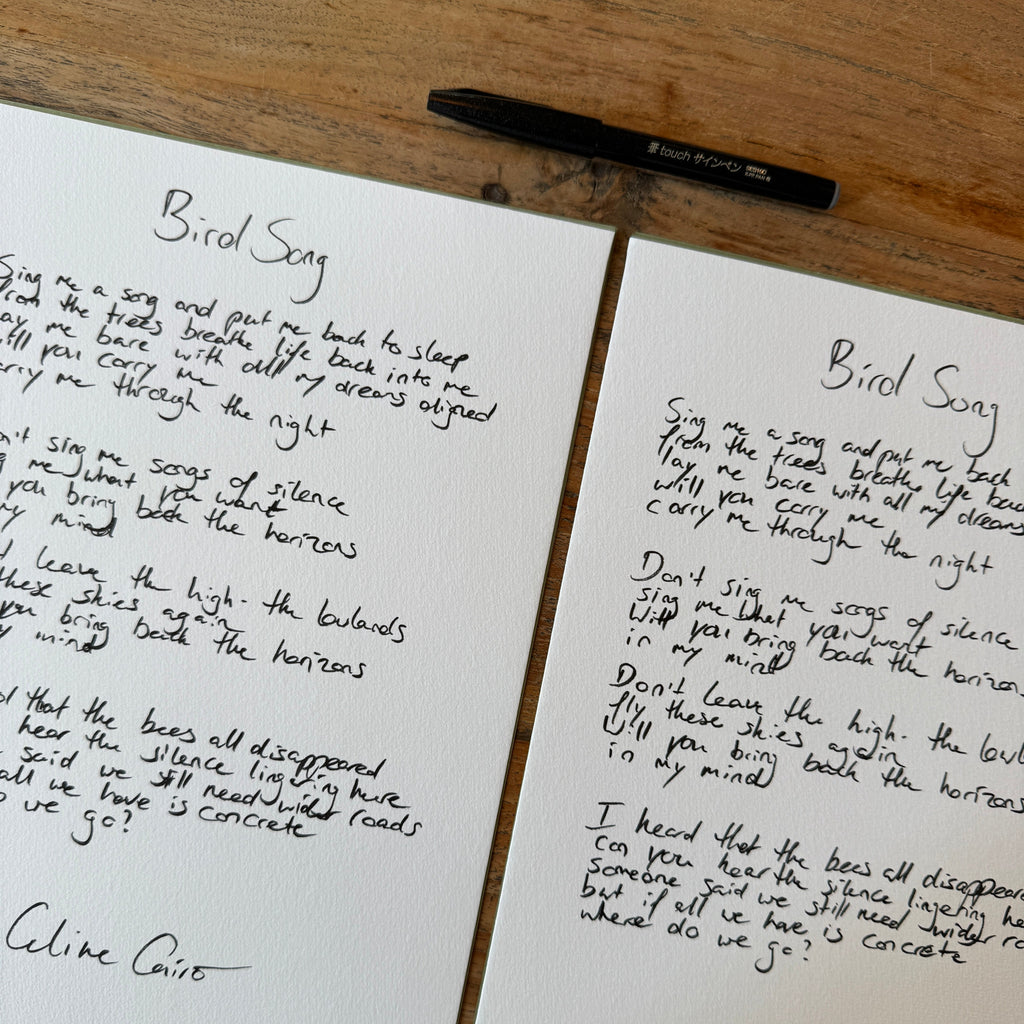 筆touch サインペン
Bird Song
Sing me a song and put me back to sleep
from the trees breathe life back into me
lay me bare with all my dreams aligned
will you carry me
carry me through the night
sing me songs of silence
me what you want
you bring back the horizons
my mind
leave the high- the lowlands
these skies again
you bring back the horizons
my mind
that the bees all disappeared
hear the silence lingering here
said we still need wider roads
all we have is concrete
do we go?
Celine Cairo
Bird Song
Sing me a song and put me back
from the trees breathe life back
lay me bare with all my dreams
will you carry me
carry me through the night
Don't sing me songs of silence
sing me what you want
Will you bring back the horizons
in my mind
Don't leave the high- the lowl
fly these skies again
Will you bring back the horizons
in my mind
I heard that the bees all disappeare
can you hear the silence lingering he
someone said we still need wider ro
but if all we have is concrete
where do we go?